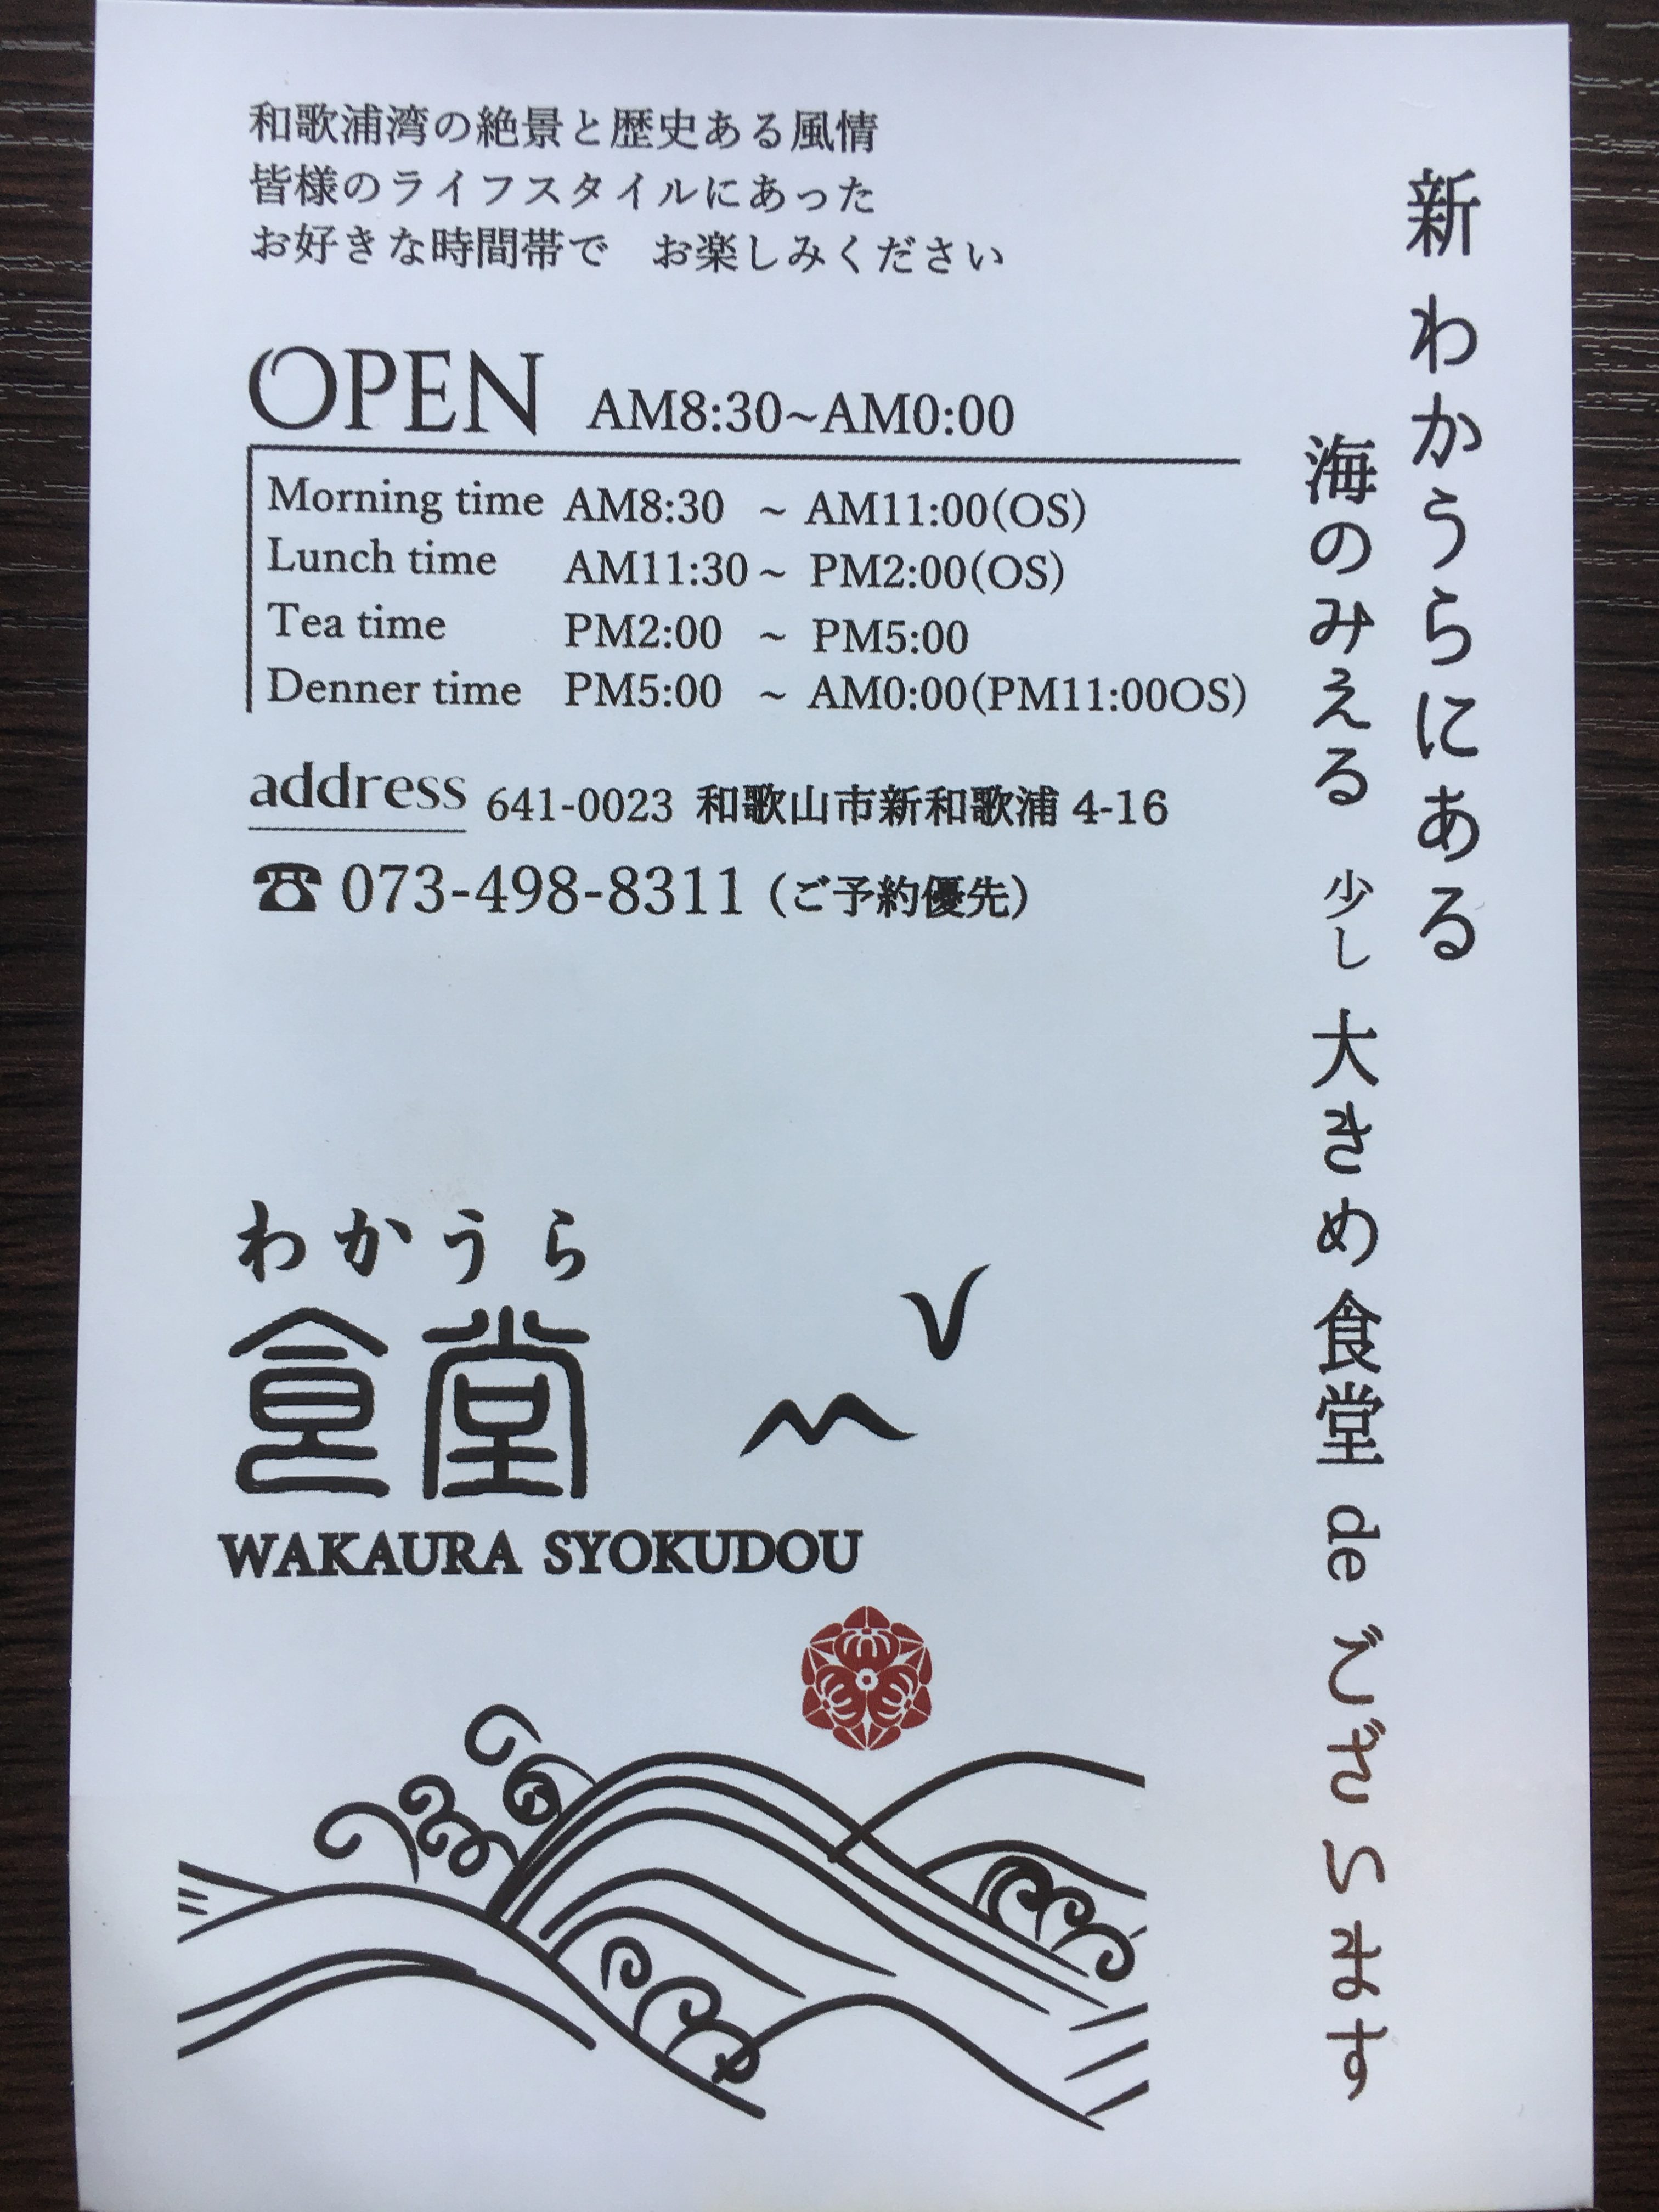 新 わかうらにある
海のみえる 少し 大きめ 食堂 de ございます
和歌浦湾の絶景と歴史ある風情
皆様のライフスタイルにあった
お好きな時間帯で　お楽しみください
OPEN AM8:30~AM0:00
Morning time AM8:30 ~ AM11:00(OS)
Lunch time AM11:30 ~ PM2:00(OS)
Tea time PM2:00 ~ PM5:00
Denner time PM5:00 ~ AM0:00(PM11:00OS)
address 641-0023 和歌山市新和歌浦 4-16
☎ 073-498-8311 (ご予約優先)
わかうら
食堂
WAKAURA SYOKUDOU